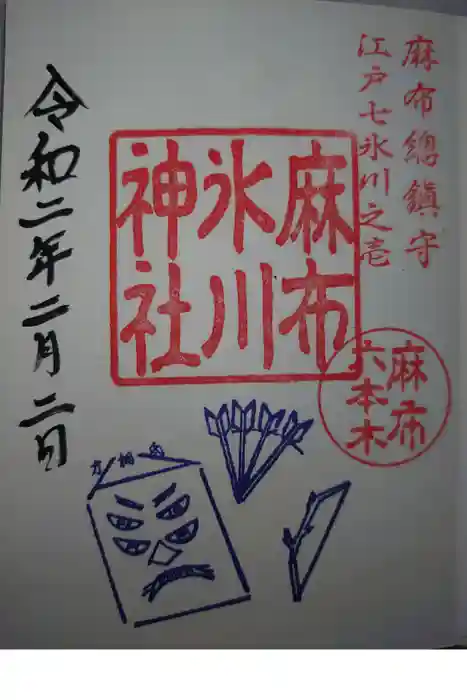 麻布總鎮守
江戸七氷川之壱
麻布
氷川
神社
麻布
六本木
令和二年二月二日
方相氏